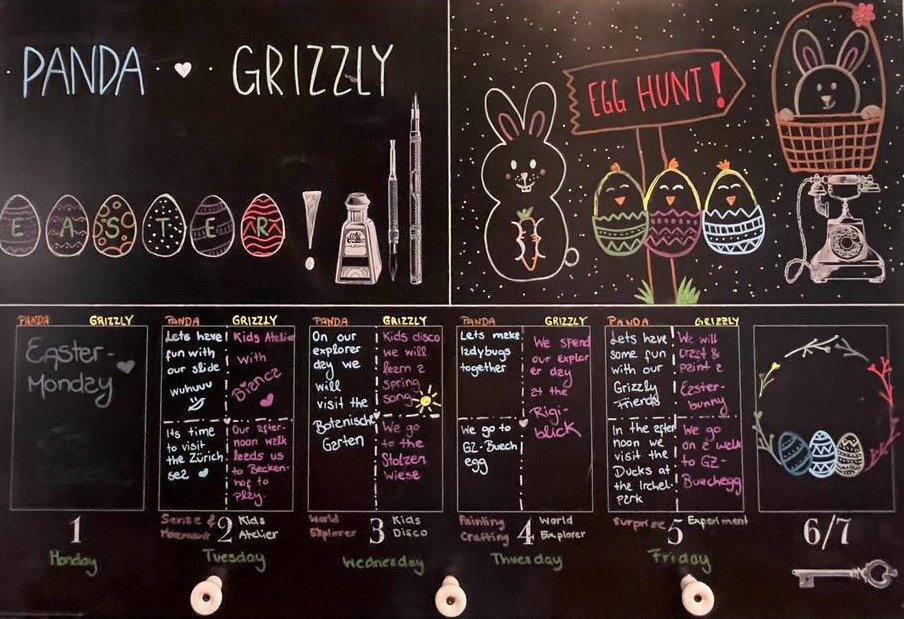 PANDA GRIZZLY
EASTER!
EGG HUNT!
PANDA GRIZZLY
Easter-
Monday
1
Monday
PANDA GRIZZLY
Lets have
fun with
our slide
wuhuuu
Its time
to visit
the Zürich
see
Kids Atelier
with
Bianca
Our after-
noon walk
leads us
to Becken-
hof to
play.
Sense &
Movement
2
Kids
Atelier
Tuesday
PANDA GRIZZLY
On our
explorer
day we
will
visit the
Botanische
Garten
Kids disco
we will
learn a
spring
song
We go
to the
Stolzen
wiese
World
Explorer
3
Kids
Disco
Wednesday
PANDA GRIZZLY
Lets make
ladybugs
together
We go to
GZ-Buech
egg
We spend
our explor
er day
at the
Rigi-
blick
Painting
Crafting
4
World
Explorer
Thuesday
PANDA GRIZZLY
Lets have
some fun
with our
Grizzly
Friends!
In the after
noon we
visit the
Ducks at
the Irchel-
park
We will
craft &
paint a
Easter-
bunny
We go
on a walk
to GZ-
Buechegg
Surprise
5
Experiment
Friday
6/7